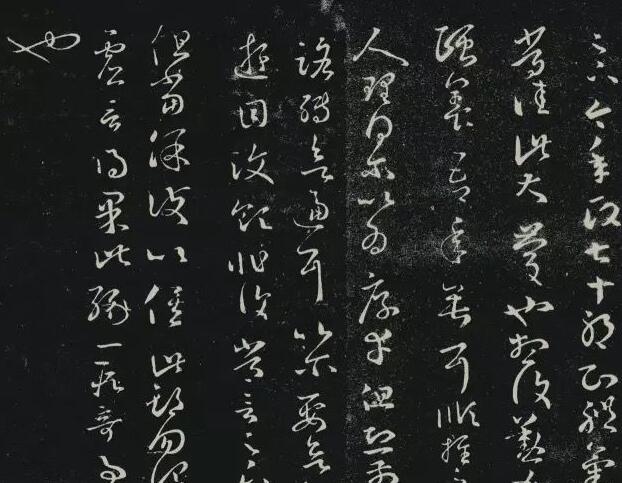 足下今年政七十耶知體氣
常佳此大慶也想復懃加
頤養吾年垂耳順推之
人理得尔以為厚幸但恐前
路轉欲逼耳以尔要欲
遊目汶領非復常言足下
但當保護以俟此期勿謂
虛言得果此緣一段奇事
也